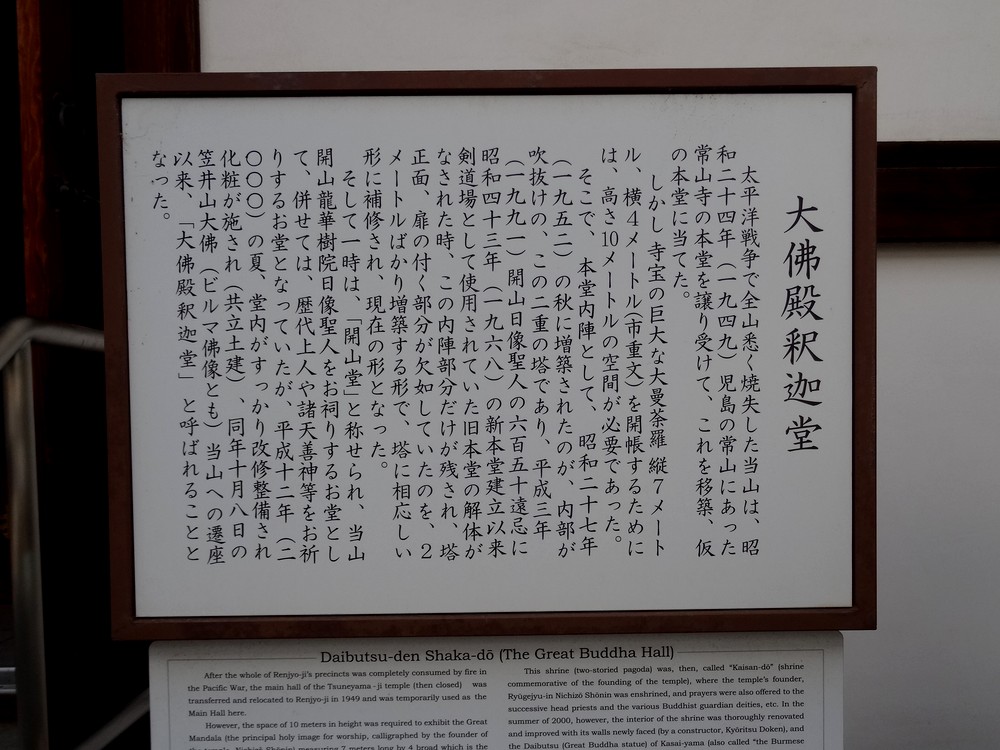 大佛殿釈迦堂
太平洋戦争で全山悉く焼失した当山は、昭
和二十四年（一九四九）児島の常山にあった
常山寺の本堂を譲り受けて、これを移築、仮
の本堂に当てた。
しかし寺宝の巨大な大曼荼羅 縦７メート
ル、横４メートル(市重文）を開帳するために
は、高さ10メートルの空間が必要であった。
そこで、本堂内陣として、昭和二十七年
（一九五二）の秋に増築されたのが、内部が
吹抜けの、この二重の塔であり、平成三年
（一九九一）開山日像聖人の六百五十遠忌に
昭和四十三年（一九六八）の新本堂建立以来
剣道場として使用されていた旧本堂の解体が
なされた時、この内陣部分だけが残され、塔
正面、扉の付く部分が欠如していたのを、２
メートルばかり増築する形で、塔に相応しい
形に補修され、現在の形となった。
そして一時は、「開山堂」と称せられ、当山
開山龍華樹院日像聖人をお祠りするお堂とし
て、併せては、歴代上人や諸天善神等をお祈
りするお堂となっていたが、平成十二年（二
〇〇〇）の夏、堂内がすっかり改修整備され
化粧が施され（共立土建）、同年十月八日の
笠井山大佛（ビルマ佛像とも）当山への遷座
以来、「大佛殿釈迦堂」と呼ばれることと
なった。
Daibutsu-den Shaka-dō (The Great Buddha Hall)
After the whole of Renjyo-ji's precincts was completely consumed by fire in
the Pacific War, the main hall of the Tsuneyama-ji temple (then closed) was
transferred and relocated to Renjyo-ji in 1949 and was temporarily used as the
Main Hall here.
However, the space of 10 meters in height was required to exhibit the Great
Mandala (the principal holy image for worship, calligraphed by the founder of
the temple, Nichizō Shōnin) measuring 7 meters long by 4 broad which is the
This shrine (two-storied pagoda) was, then, called "Kaisan-dō" (shrine
commemorative of the founding of the temple), where the temple's founder,
Ryūgejyu-in Nichizō Shōnin was enshrined, and prayers were also offered to the
successive head priests and the various Buddhist guardian deities, etc. In the
summer of 2000, however, the interior of the shrine was thoroughly renovated
and improved with its walls newly faced (by a constructor, Kyōritsu Doken), and
the Daibutsu (Great Buddha statue) of Kasai-yama (also called "the Burmese